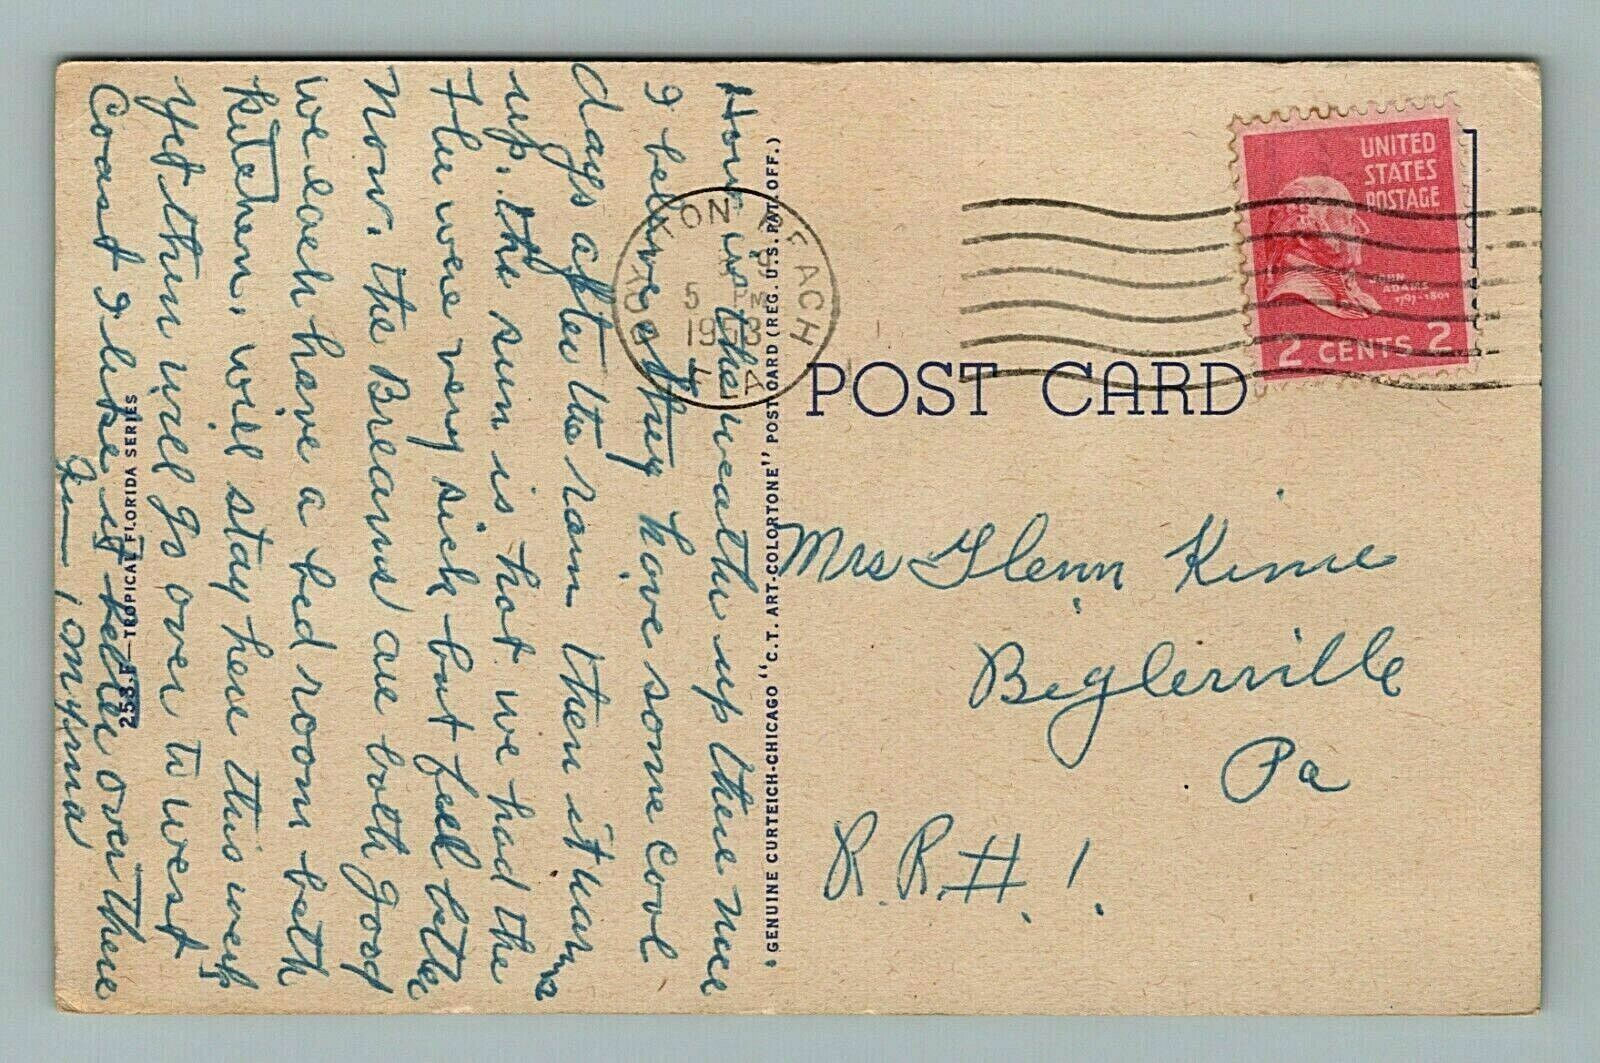 How is the weather up there nice
I believe they have some cool
days after the rain then it warms
up. the sun is hot we had the
Flu were very sick but feel better
Now. the Breams are both good
we each have a bed room bath
kitchen, will stay here this week
yet then will go over to west
Coast I like it better over there
258 F—TROPICAL FLORIDA SERIES
"GENUINE CURTEICH-CHICAGO "C.T. ART-COLORTONE" POST CARD (REG. U.S. PAT. OFF.)
BEACH
5 PM
1953
FLA
UNITED
STATES
POSTAGE
JOHN
ADAMS
1797-1801
2 CENTS 2
POST CARD
Mrs Glenn Kime
Biglerville
Pa
R.R.#.1.